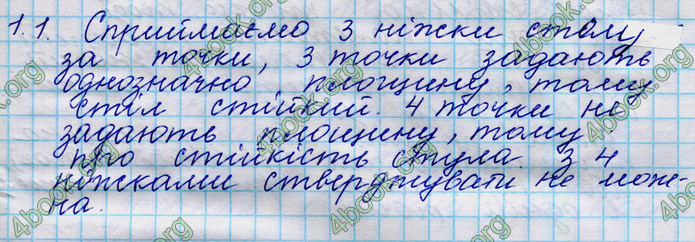 1.1. Сприймаємо 3 ніжки столу
за точки, 3 точки задають
однозначно площину, тому
стіл стійкий. 4 точки не
задають площину, тому
про стійкість стула з 4
ніжками стверджувати не мож-
на.